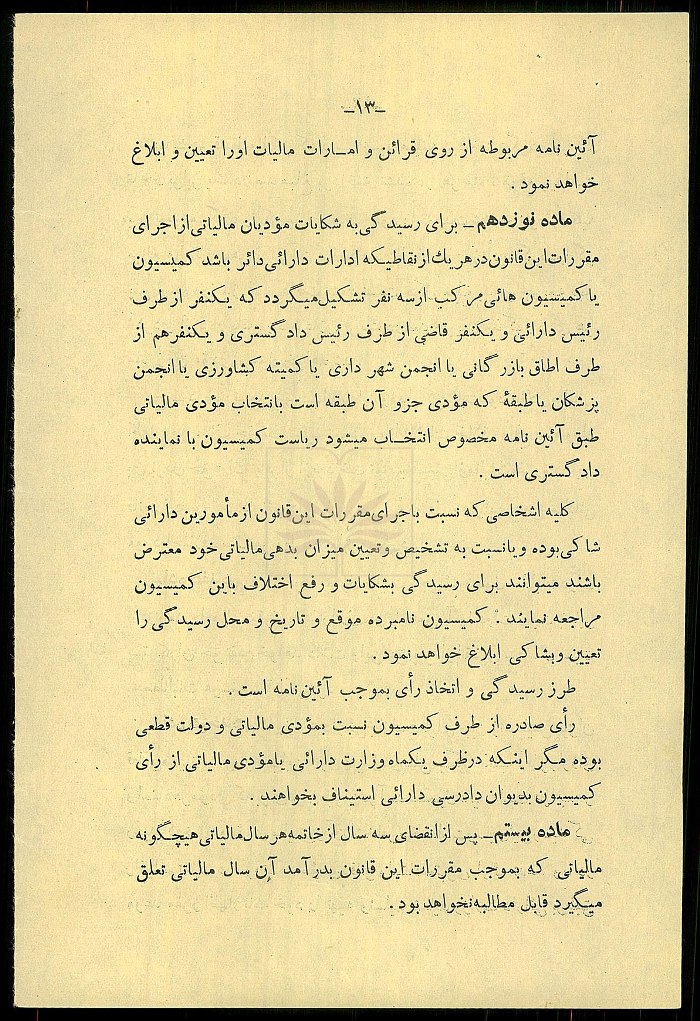 -۱۳-
آئین نامه مربوطه از روی قرائن و امارات مالیات اورا تعیین و ابلاغ
خواهد نمود .
ماده نوزدهم – برای رسیدگی به شکایات مؤدیان مالیاتی از اجرای
مقررات این قانون در هر یك از نقاطیکه ادارات دارائی دائر باشد کمیسیون
یا کمیسیون هائی مرکب از سه نفر تشکیل میگردد که یکنفر از طرف
رئیس دارائی و یکنفر قاضی از طرف رئیس دادگستری و یکنفر هم از
طرف اطاق بازرگانی یا انجمن شهرداری یا کمیته کشاورزی یا انجمن
پزشکان یا طبقهٔ که مؤدی جزو آن طبقه است بانتخاب مؤدی مالیاتی
طبق آئین نامه مخصوص انتخاب میشود ریاست کمیسیون با نماینده
دادگستری است .
کلیه اشخاصی که نسبت باجرای مقررات این قانون از مأمورین دارائی
شاکی بوده و یا نسبت به تشخیص و تعیین میزان بدهی مالیاتی خود معترض
باشند میتوانند برای رسیدگی بشکایات و رفع اختلاف باین کمیسیون
مراجعه نمایند . کمیسیون نامبرده موقع و تاریخ و محل رسیدگی را
تعیین و بشاکی ابلاغ خواهد نمود .
طرز رسیدگی و اتخاذ رأی بموجب آئین نامه است .
رأی صادره از طرف کمیسیون نسبت بمؤدی مالیاتی و دولت قطعی
بوده مگر اینکه در ظرف یکماه وزارت دارائی یا مؤدی مالیاتی از رأی
کمیسیون بدیوان دادرسی دارائی استیناف بخواهند .
ماده بیستم – پس از انقضای سه سال از خاتمه هر سال مالیاتی هیچگونه
مالیاتی که بموجب مقررات این قانون بدرآمد آن سال مالیاتی تعلق
میگیرد قابل مطالبه نخواهد بود .